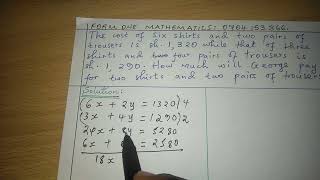 FORM ONE MATHEMATICS: 0704 153 866.
The cost of six shirts and two pairs of
trousers is sh. 1,320 while that of three
shirts and four pairs of trousers is
sh. 1,290. How much will George pay
for two shirts and two pairs of trousers
Solution:
(6x + 2y = 1320)4
(3x + 4y = 1290)2
24x + 8y = 5280
6x + = 2580
18x